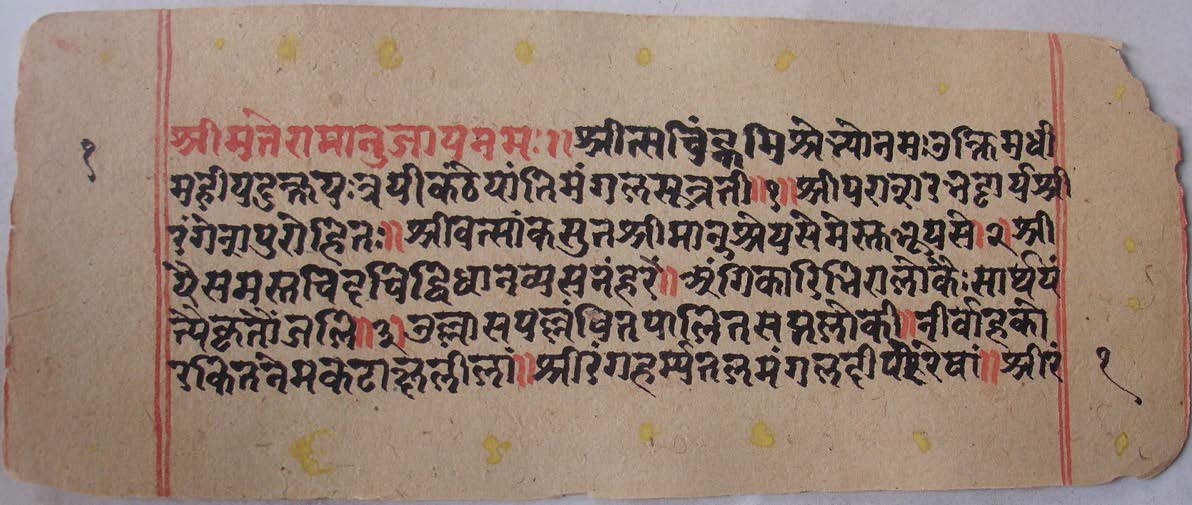 १
श्रीमतेरामानुजायनमः॥ श्रीत्सचिंह्नमिश्रेभ्योनमःउक्तिमधी
महीयदुक्तयःत्रयीकंठेयांतिमंगलसूत्रतां॥१॥ श्रीपराशरभट्टार्यश्री
रंगेशपुरोहितः॥ श्रीवत्सांकसुतश्रीमान्श्रेयसेमेस्तुभूयसे।२।श्री
यैसमस्तचिदचिद्विधानव्यसनंहरेः॥ अंगिकारिभिरालोकैःसार्थयं
त्यैकृतोंजलि॥३।उल्लासपल्लंवितपालितसप्तलोकी॥नीर्वाहको
रकितनेमकटाक्षलीलां॥श्रीरंगहर्म्यतलमंगलदीपरेखां॥श्रीरं
१